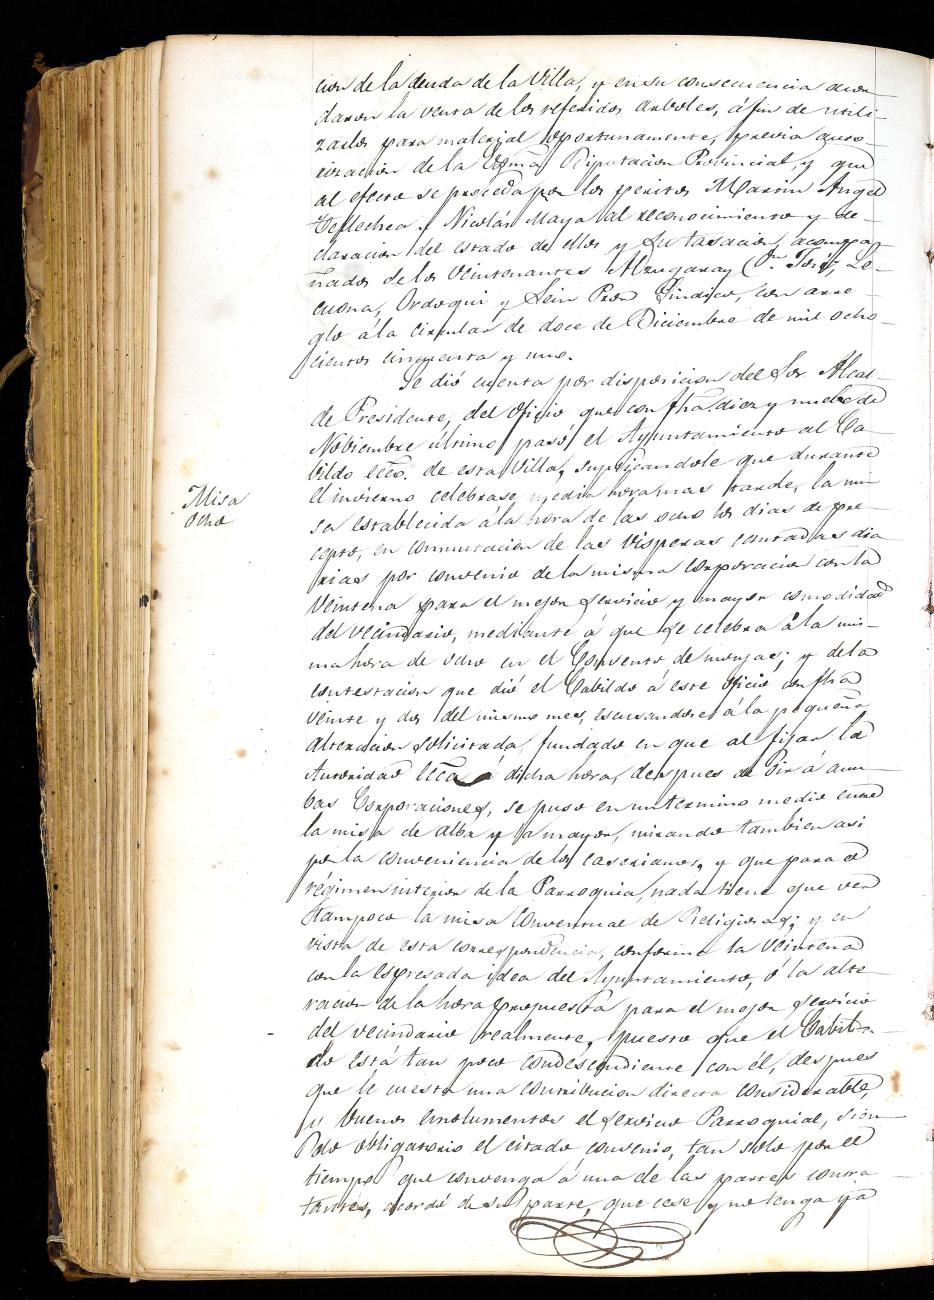 cion de la deuda de la Villa, y en su consecuencia acor-
daron la venta de los referidos arboles, á fin de utili-
zarlos para material oportunamente, previa auto-
rizacion de la Exma Diputacion Provincial, y que
al efecto se proceda por los peritos Martin Angel
Teflechea y Nicolás Maya al reconocimiento y de-
claracion del estado de ellos y su tasacion, acompa-
ñados de los Veintenantes Alzugaray (Dn. José), Le-
cuona, Ordoqui y Sein Pror Sindico, con arre-
glo á la circular de doce de Diciembre de mil ocho-
cientos cinquenta y uno.
Se dió cuenta por disposicion del Sor Alcal-
de Presidente, del oficio que con fha. diez y nuebe de
Nobiembre último pasó el Ayuntamiento al Ca-
bildo ecco. de esta Villa, suplicandole que durante
el invierno celebrase media hora mas tarde, la mi-
sa establecida á la hora de las ocho los dias de pre-
cepto, en conmutacion de las Visperas cantadas dia-
rias por convenio de la misma corporacion con la
Veintena para el mejor servicio y mayor comodidad
del vecindario, mediante á que se celebra á la mis-
ma hora de ocho en el Convento de monjas; y de la
contestacion que dió el Cabildo á este oficio con fha
veinte y dos del mismo mes, escusandose á la pequeña
alteracion solicitada, fundado en que al fijar la
Autoridad ecca á dicha hora, despues de oir á am-
bas Corporaciones, se puso en un termino medio entre
la misa de alba y la mayor, mirando tambien asi
por la conveniencia de los caserianos, y que para el
régimen interior de la Parroquia, nada tiene que ver
tampoco la misa Conventual de Religiosas; y en
vista de esta correspondencia, conforme la Veintena
con la espresada idea del Ayuntamiento, ó la alte-
racion de la hora propuesta para el mejor servicio
del vecindario realmente, puesto que el Cabil-
do está tan poco condescendiente con él, despues
que le cuesta una contribucion directa considerable,
y buenos emolumentos el servicio Parroquial, sien-
do obligatorio el citado convenio, tan solo por el
tiempo que convenga á una de las partes contra-
tantes, acordó de su parte, que cese y no tenga ya
Misa
Ocho